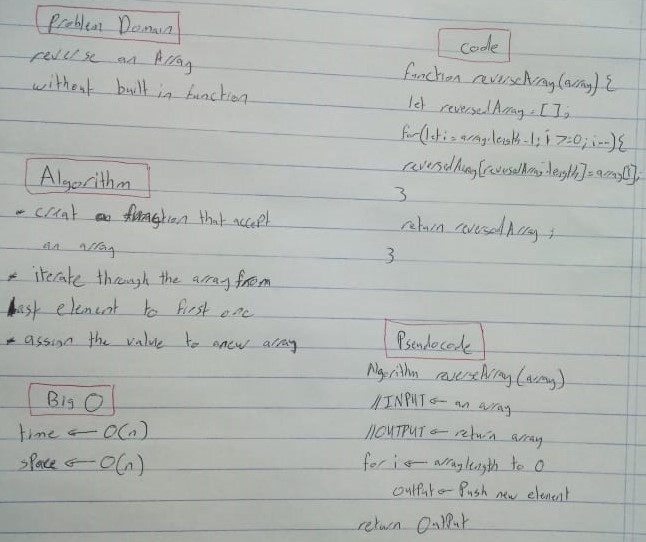 Problem Domain
reverse an Array
without built in function
Algorithm
* creat a function that accept
an array
* iterate through the array from
last element to first one
* assign the value to anew array
Big O
time ← O(n)
space ← O(n)
code
function reverseArray(array) {
let reversedArray = [];
for(let i = array.length - 1; i >= 0; i--){
reversedArray[reversedArray.length] = array[i];
}
return reversedArray;
}
Pseudocode
Algorithm reverseArray (array)
//INPUT ← an array
//OUTPUT ← return array
for i ← array length to 0
OutPut ← Push new element
return OutPut